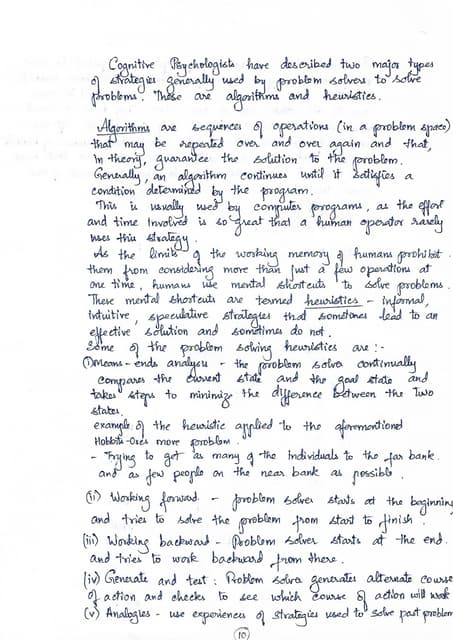 Cognitive Psychologists have described two major types
of strategies generally used by problem solvers to solve
problems. These are algorithms and heuristics.
Algorithms are sequences of operations (in a problem space)
that may be repeated over and over again and that,
in theory, guarantee the solution to the problem.
Generally, an algorithm continues until it satisfies a
condition determined by the program.
This is usually used by computer programs, as the effort
and time involved is so great that a human operator rarely
uses this strategy.
As the limits of the working memory of humans prohibit
them from considering more than just a few operations at
one time, humans use mental shortcuts to solve problems.
These mental shortcuts are termed heuristics - informal,
intuitive, speculative strategies that sometimes lead to an
effective solution and sometimes do not.
Some of the problem solving heuristics are :-
(i) Means - ends analysis - the problem solver continually
compares the current state and the goal state and
takes steps to minimize the difference between the two
states.
example of the heuristic applied to the aforementioned
Hobbits-Orcs move problem.
- Trying to get as many of the individuals to the far bank
and as few people on the near bank as possible.
(ii) Working forward - problem solver starts at the beginning
and tries to solve the problem from start to finish.
(iii) Working backward - Problem solver starts at the end.
and tries to work backward from there.
(iv) Generate and test : Problem solver generates alternate course
of action and checks to see which course of action will work
(v) Analogies - use experiences of strategies used to solve past problem
10